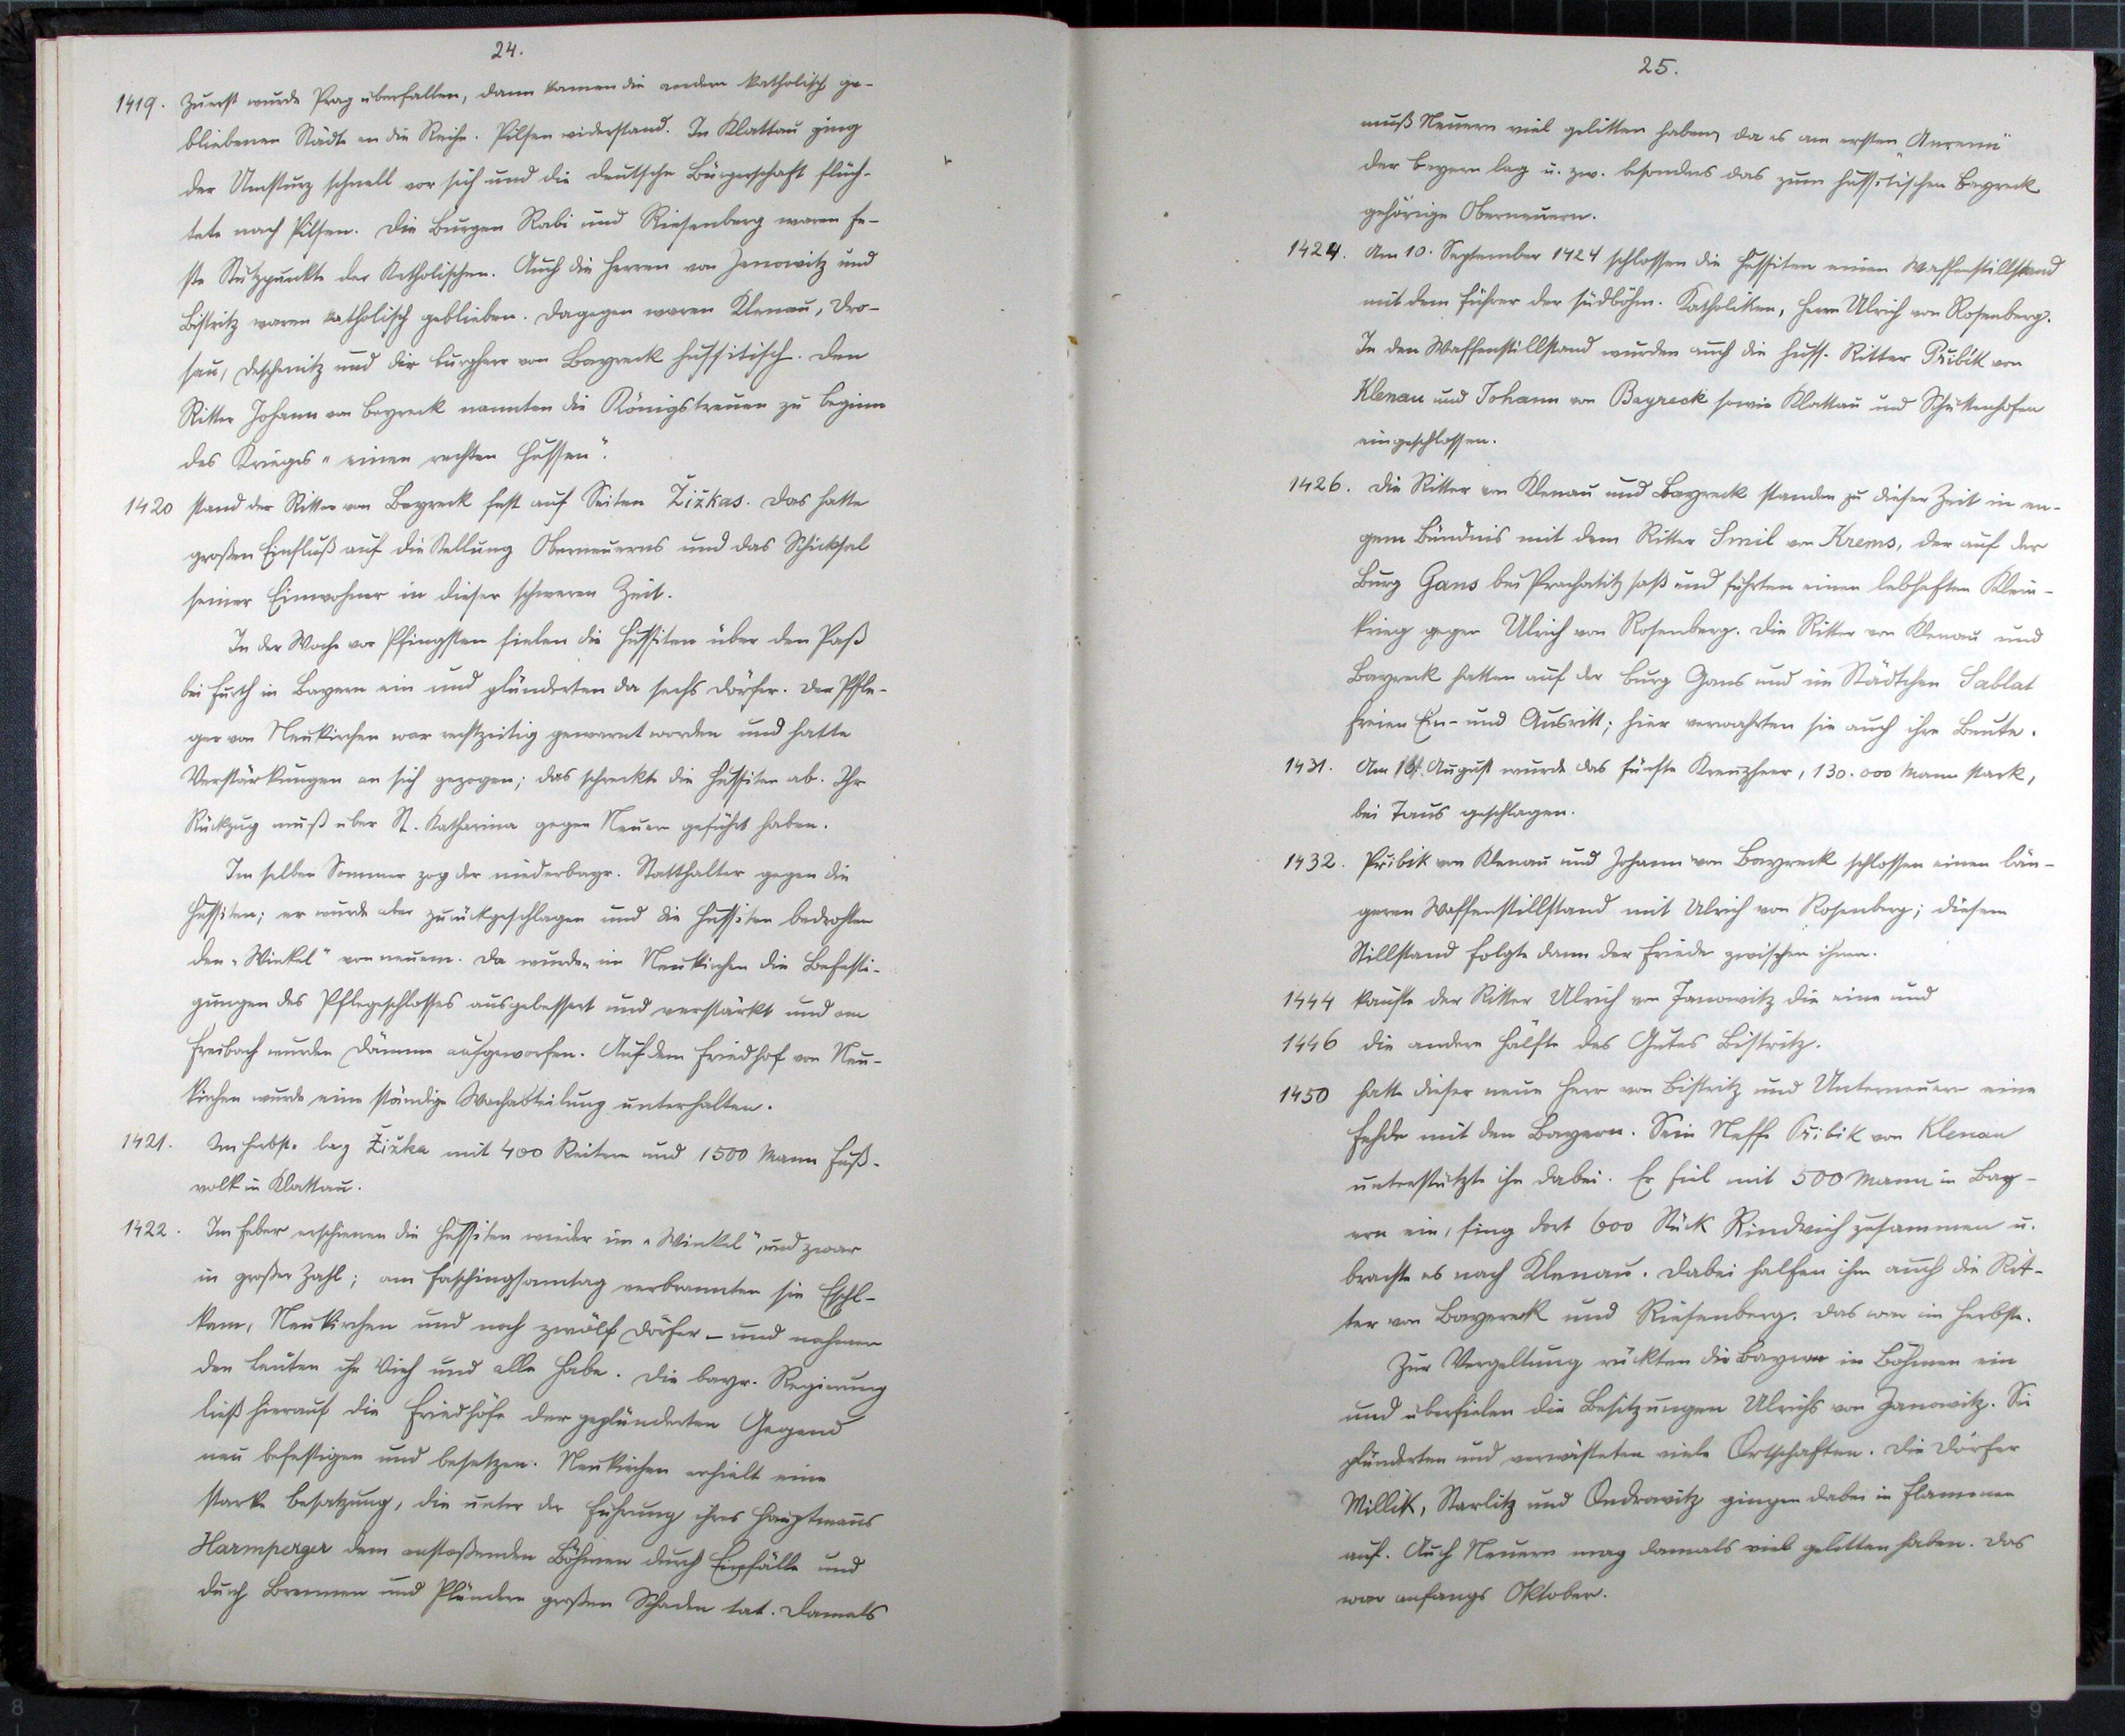 24.
1419. Zuerst wurde Prag überfallen, dann kamen die andern katholisch ge-
bliebenen Städte an die Reihe. Pilsen widerstand. In Klattau ging
der Umsturz schnell vor sich und die deutsche Bürgerschaft flüch-
tete nach Pilsen. Die Burgen Rabi und Riesenberg waren fe-
ste Stützpunkte der Katholischen. Auch die Herren von Janowitz und
Bistritz waren katholisch geblieben. Dagegen waren Klenau, Dro-
sau, Deschenitz und die Burgherr von Bayreck hussitisch. Den
Ritter Johann von Bayreck nannten die Königstreuen zu Beginn
des Krieges „einen rechten Hussen".
1420 stand der Ritter von Bayreck fest auf Seiten Žižkas. Das hatte
großen Einfluß auf die Stellung Oberneuerns und das Schicksal
seiner Einwohner in dieser schweren Zeit.
In der Woche vor Pfingsten fielen die Hussiten über den Paß
bei Furth in Bayern ein und plünderten da sechs Dörfer. Der Pfle-
ger von Neukirchen war rechtzeitig gewarnt worden und hatte
Verstärkungen an sich gezogen; das schreckte die Hussiten ab. Ihr
Rückzug muß über St. Katharina gegen Neuern geführt haben.
Im selben Sommer zog der niederbayr. Statthalter gegen die
Hussiten; er wurde aber zurückgeschlagen und die Hussiten bedrohten
den „Winkel" von neuem. Da wurden in Neukirchen die Befesti-
gungen des Pflegeschlosses ausgebessert und verstärkt und am
Freibach wurden Dämme aufgeworfen. Auf dem Friedhof von Neu-
kirchen wurde eine ständige Wachabteilung unterhalten.
1421. Im Herbste lag Žižka mit 400 Reitern und 1500 Mann Fuß-
volk in Klattau.
1422. Im Feber erschienen die Hussiten wieder im „Winkel", und zwar
in großer Zahl; am Faschingsamtag verbrannten sie Eschl-
kam, Neukirchen und noch zwölf Dörfer – und nahmen
den Leuten ihr Vieh und alle Habe. Die bayr. Regierung
ließ hierauf die Friedhöfe der geplünderten Gegend
neu befestigen und besetzen. Neukirchen erhielt eine
starke Besatzung, die unter der Führung ihres Hauptmanns
Harmperger dem anstoßenden Böhmen durch Einfälle und
durch Brennen und Plündern großen Schaden tat. Damals
25.
muß Neuern viel gelitten haben, da es am ersten
der Bayern lag u. zw. besonders das zum hussitischen Bayreck
gehörige Oberneuern.
1424. Am 10. September 1424 schlossen die Hussiten einen Waffenstillstand
mit dem Führer der südböhm. Katholiken, Herrn Ulrich von Rosenberg.
In den Waffenstillstand wurden auch die huss. Ritter Přibik von
Klenau und Johann von Bayreck sowie Klattau und Schüttenhofen
eingeschlossen.
1426. Die Ritter von Klenau und Bayreck standen zu dieser Zeit in en-
gem Bündnis mit dem Ritter Smil von Krems, der auf der
Burg Gans bei Prachatitz saß und führten einen lebhaften Klein-
krieg gegen Ulrich von Rosenberg. Die Ritter von Klenau und
Bayreck hatten auf der Burg Gans und im Städtchen Sablat
freien Ein- und Ausritt; hier verwahrten sie auch ihre Beute.
1431. Am August wurde das fünfte Kreuzheer, 130.000 Mann stark,
bei Taus geschlagen.
1432. Přibik von Klenau und Johann von Bayreck schlossen einen län-
geren Waffenstillstand mit Ulrich von Rosenberg; diesem
Stillstand folgte dann der Friede zwischen ihnen.
1444 kaufte der Ritter Ulrich von Janowitz die eine und
1446 die andere Hälfte des Gutes Bistritz.
1450 hatte dieser neue Herr von Bistritz und Unterneuern eine
Fehde mit den Bayern. Sein Neffe Přibik von Klenau
unterstützte ihn dabei. Er fiel mit 500 Mann in Bay-
ern ein, fing dort 600 Stück Rindvieh zusammen u.
brachte es nach Klenau. Dabei halfen ihm auch die Rit-
ter von Bayereck und Riesenberg. Das war im Herbste.
Zur Vergeltung rückten die Bayern in Böhmen ein
und überfielen die Besitzungen Ulrichs von Janowitz. Sie
plünderten und verwüsteten viele Ortschaften. Die Dörfer
Millik, Starlitz und Ondrowitz gingen dabei in Flammen
auf. Auch Neuern mag damals viel gelitten haben. Das
war anfangs Oktober.